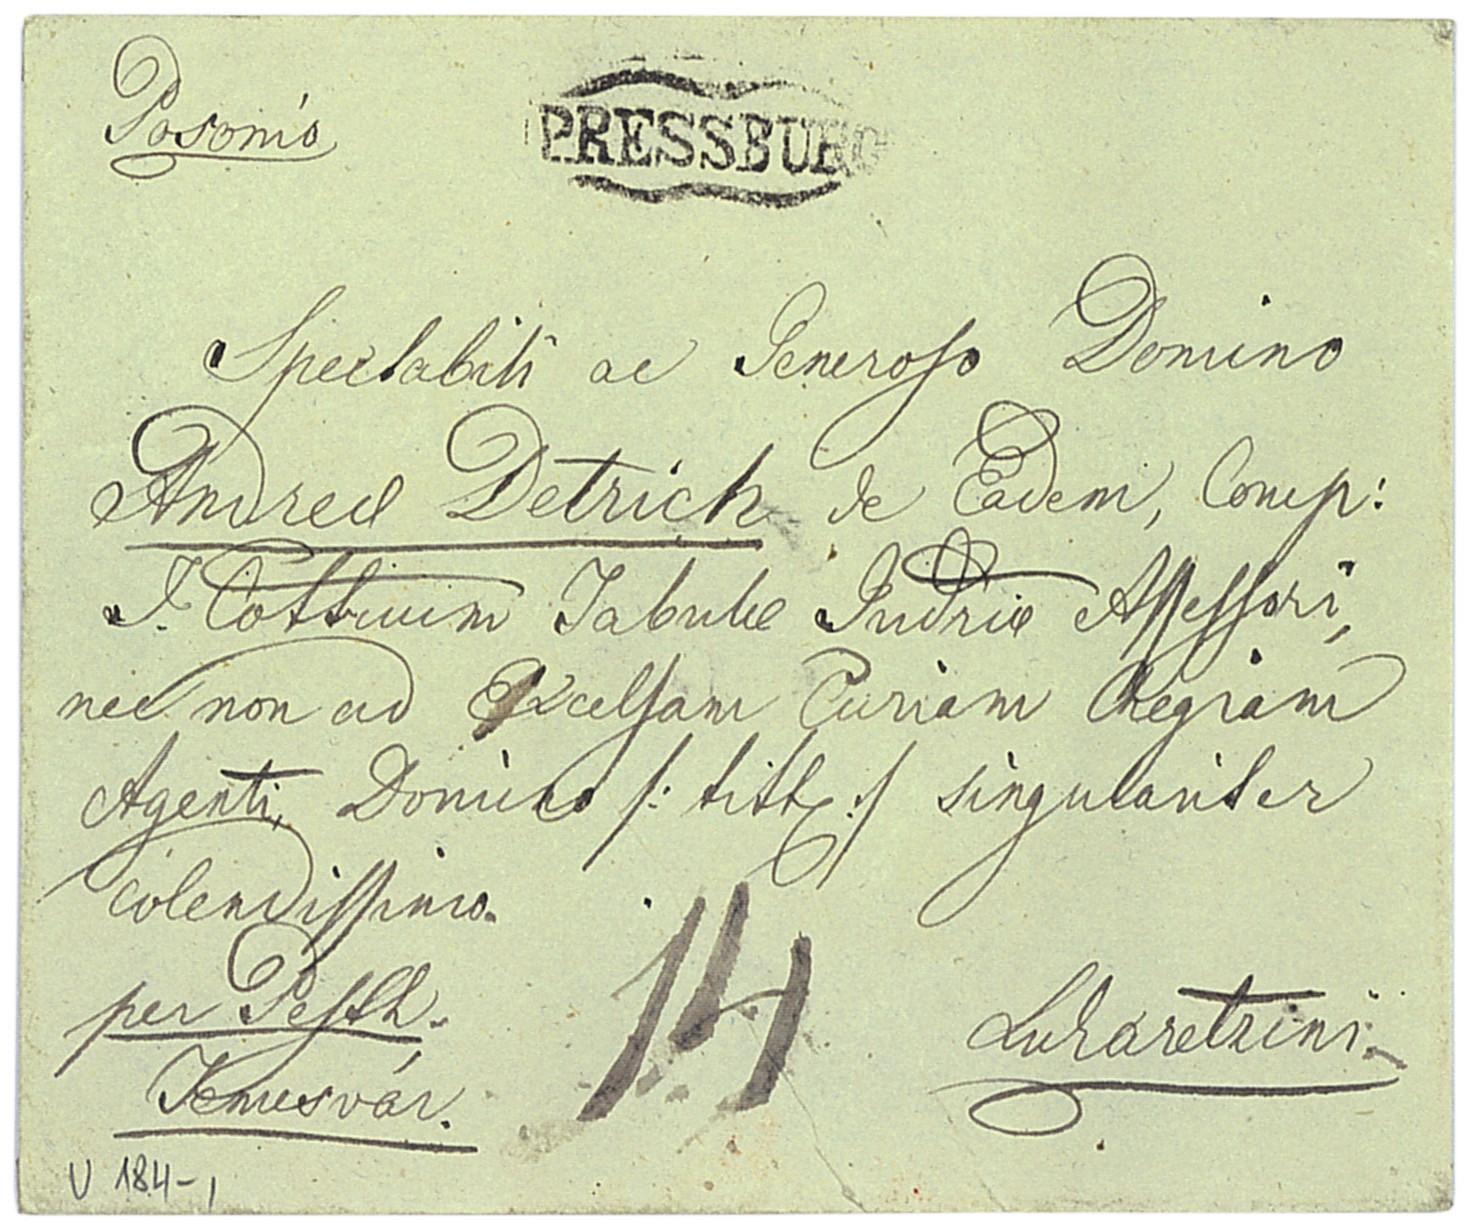 Posonio
PRESSBURG
Spectabili ac Generoso Domino
Andreæ Detrich de Eadem, Comp:
I. Cottuum Tabulæ Judriæ Assessori,
nec non ad Excelsam Curiam Regiam
Agenti, Domino /: titt :/ singulariter
colendissimo.
per Pesth.
Temesvár.
14
Lukaretzini.
V 184-1